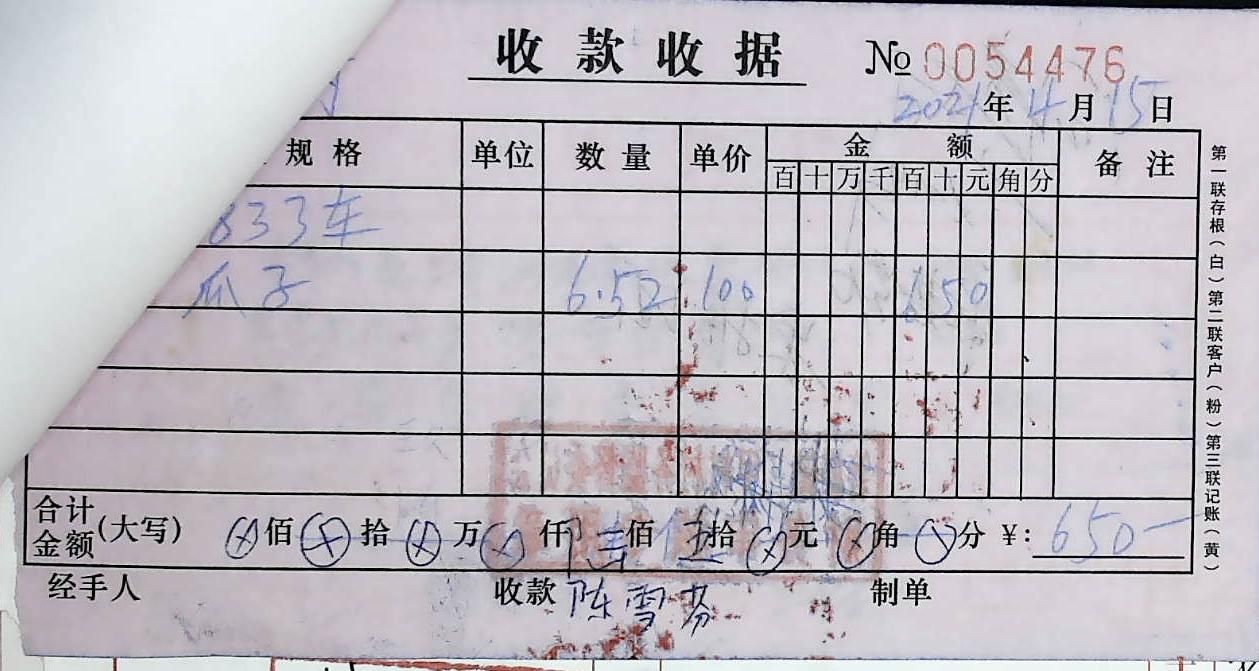 收款收据 № 0054476
2021年4月15日
规格 单位 数量 单价 金额 备注
百 十 万 千 百 十 元 角 分
833车
瓜子 6.52 100 650
合计金额(大写) ⊗佰⊗拾⊗万⊗仟 佰伍拾⊗元⊗角⊗分 ¥:650-
经手人 收款 陈雪芬 制单
第一联存根(白)第二联客户(粉)第三联记账(黄)